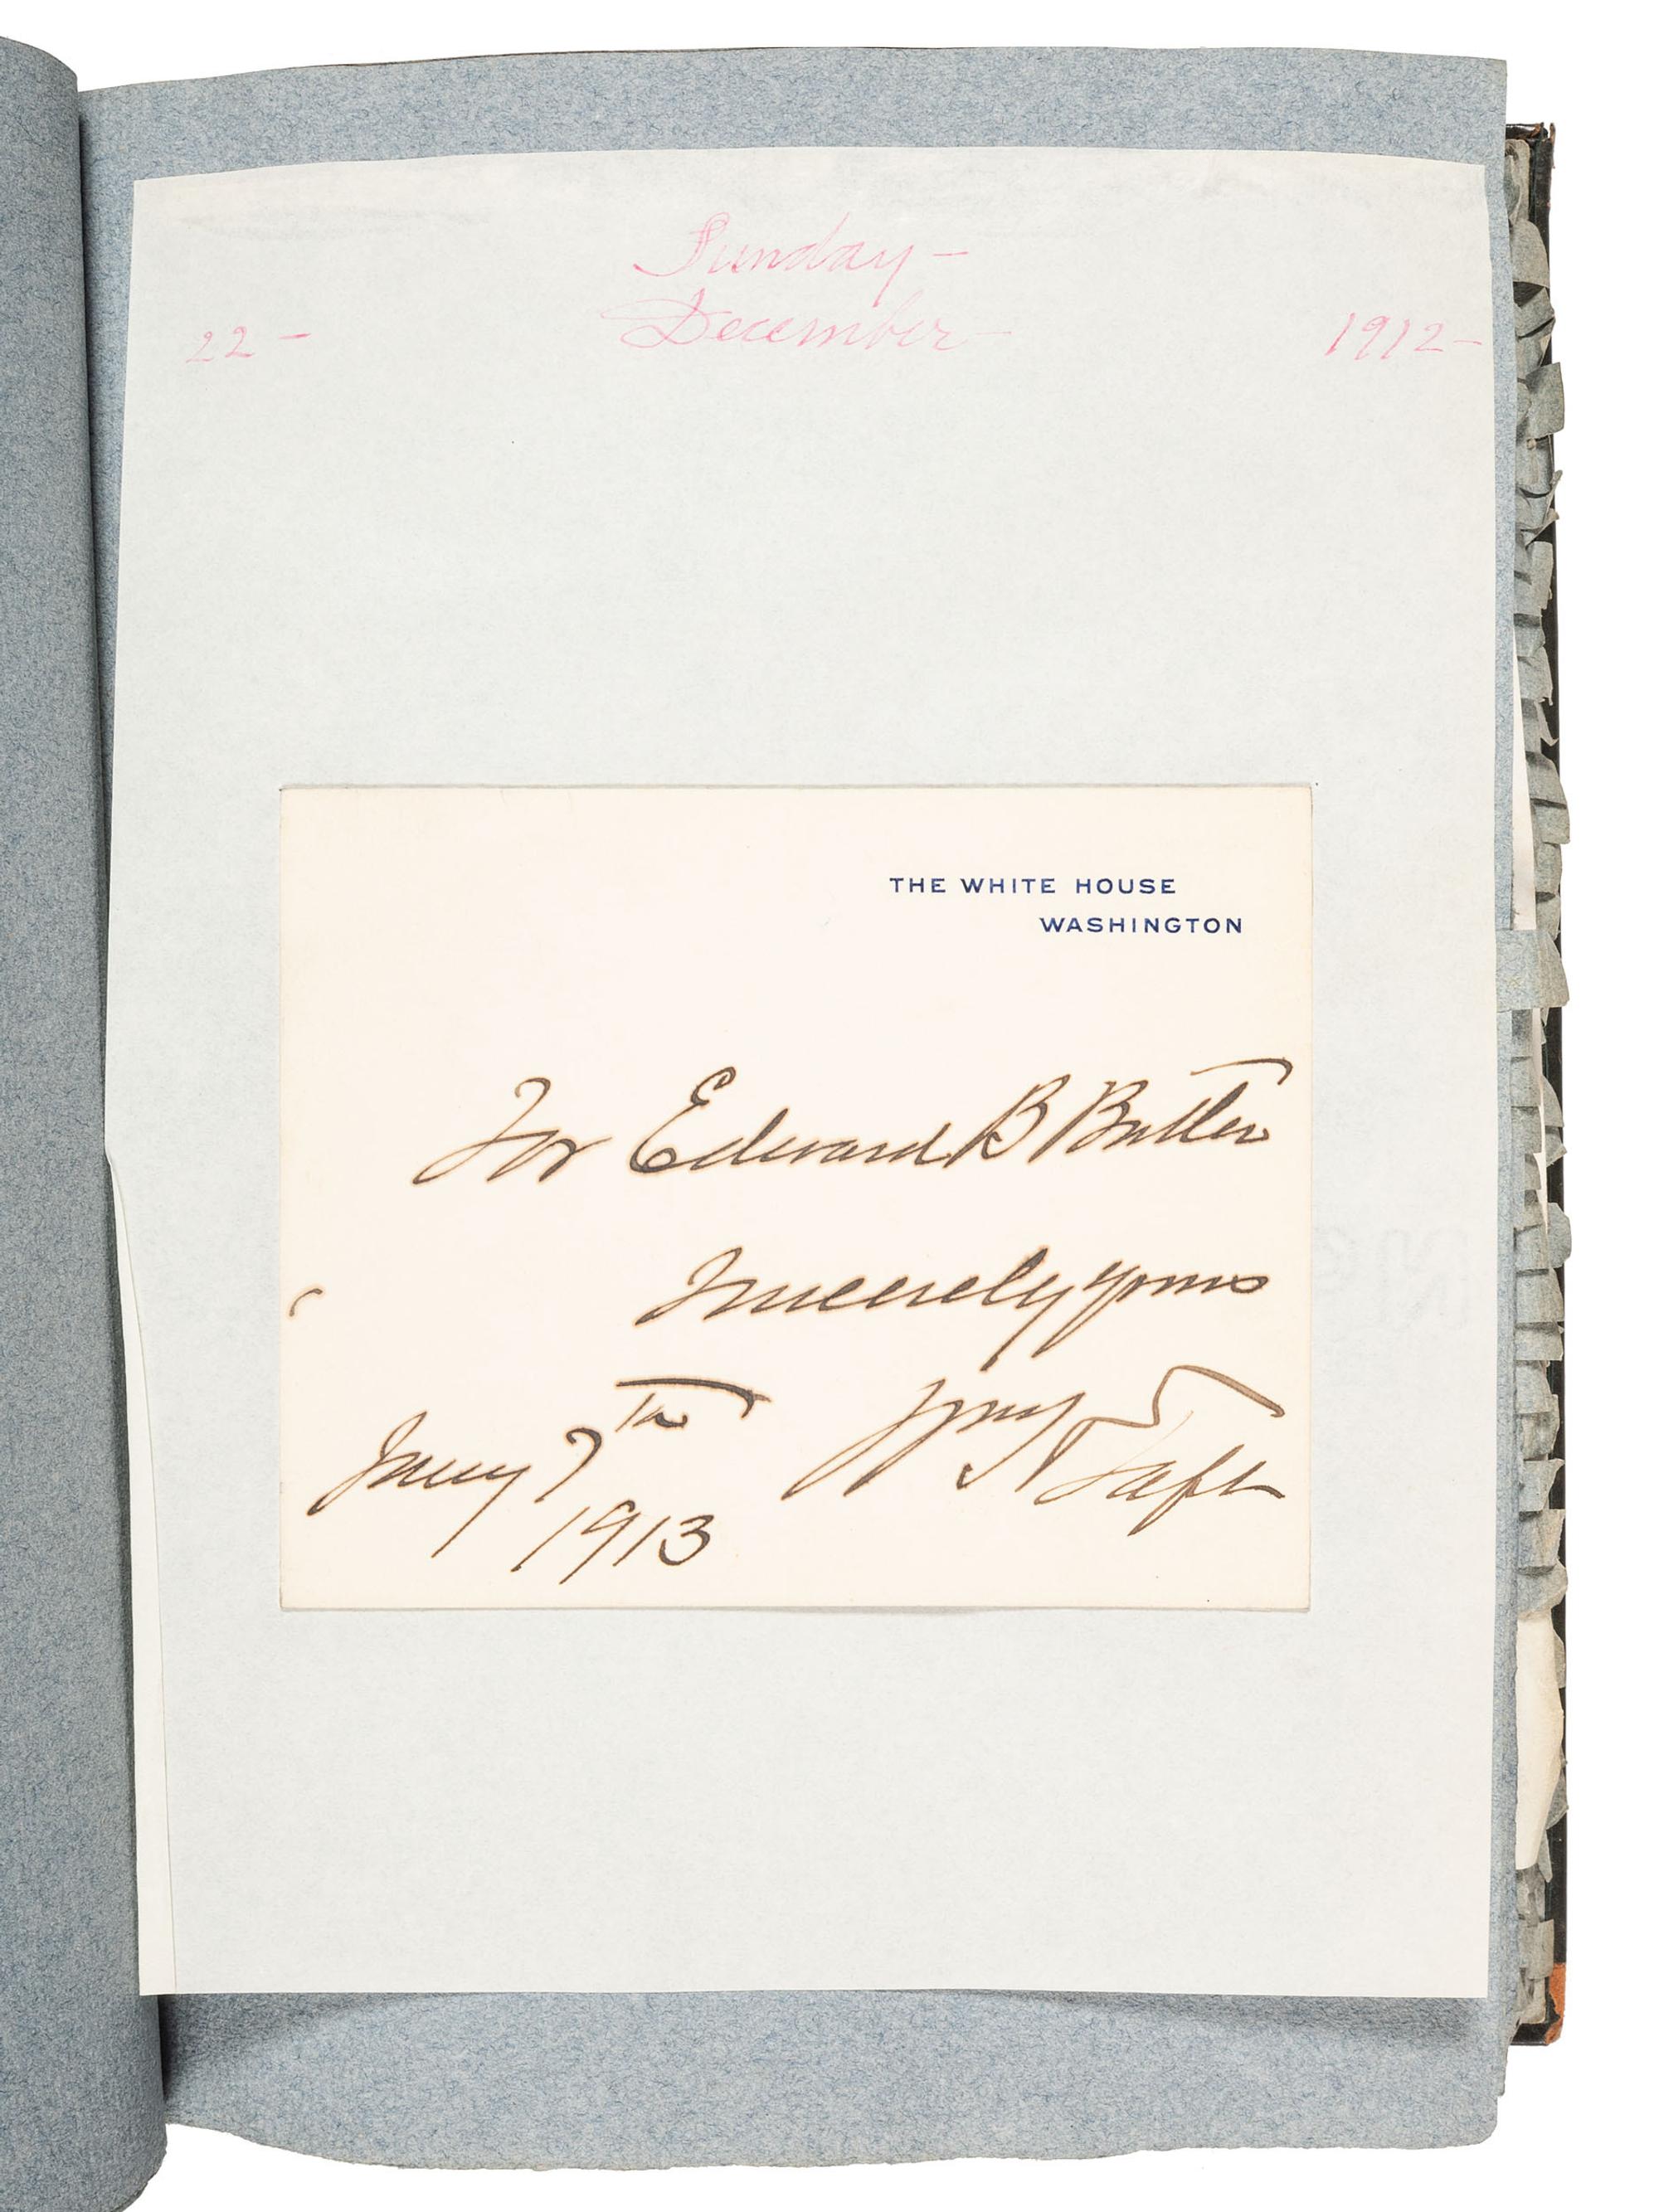 Sunday –
22 – December – 1912 –
THE WHITE HOUSE
WASHINGTON
For Edward B Butler
Sincerely yours
Wm H Taft
Jany 7th
1913